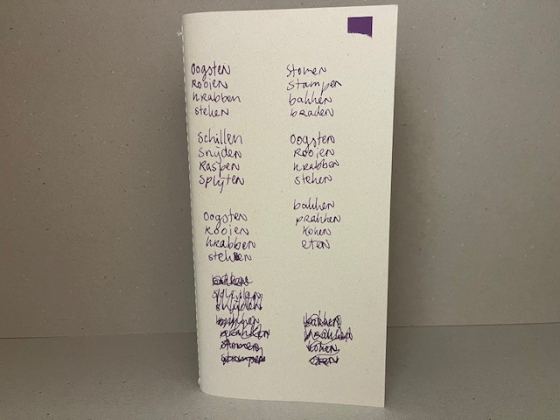 Oogsten
Rooien
krabben
steken
Schillen
Snijden
Raspen
Splijten
Oogsten
Rooien
krabben
steken
Stomen
Stampen
bakken
braden
Oogsten
Rooien
krabben
steken
bakken
prakken
koken
eten